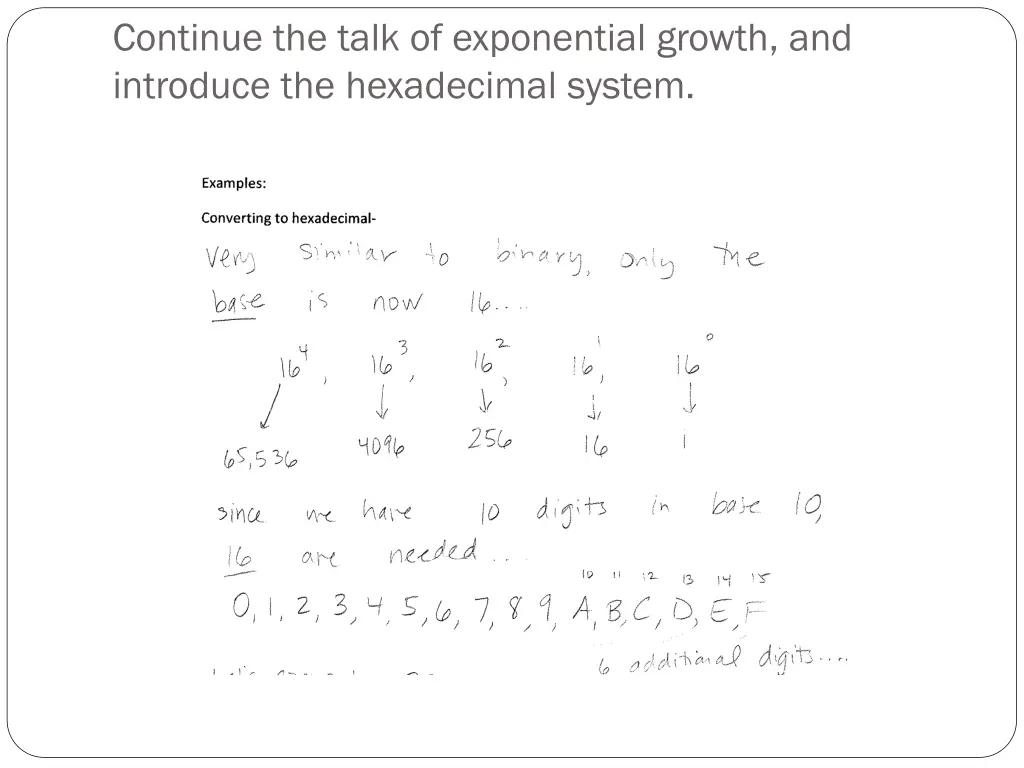 Continue the talk of exponential growth, and
introduce the hexadecimal system.
Examples:
Converting to hexadecimal-
Very similar to binary, only the
base is now 16....
16⁴, 16³, 16², 16¹, 16⁰
65,536 4096 256 16 1
since we have 10 digits in base 10,
16 are needed....
10 11 12 13 14 15
0, 1, 2, 3, 4, 5, 6, 7, 8, 9, A, B, C, D, E, F
6 additional digits....